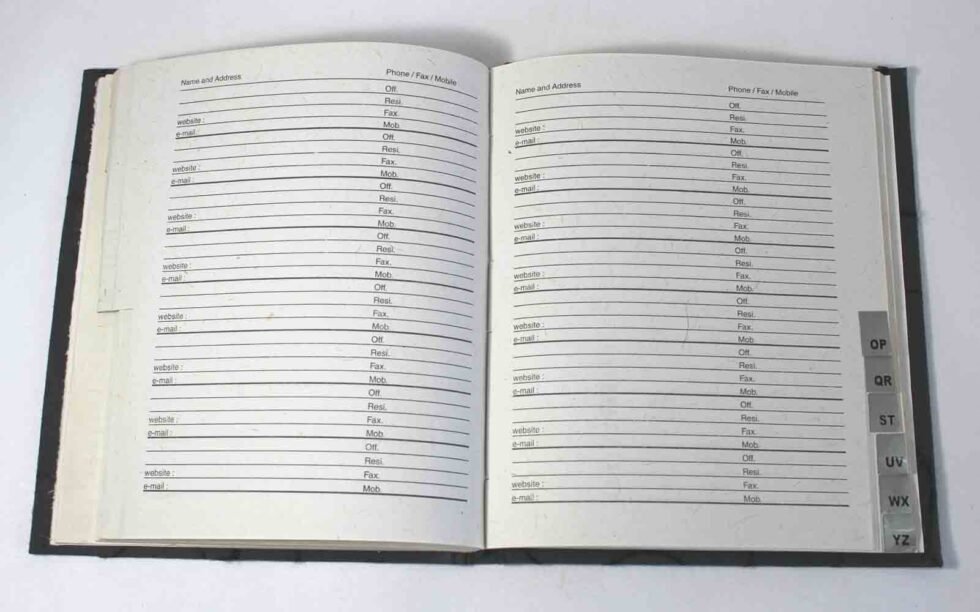 Name and Address Phone / Fax / Mobile
Off.
Resi.
website : Fax.
e-mail : Mob.
Off.
Resi.
website : Fax.
e-mail : Mob.
Off.
Resi.
website : Fax.
e-mail : Mob.
Off.
Resi.
website : Fax.
e-mail : Mob.
Off.
Resi.
website : Fax.
e-mail : Mob.
Off.
Resi.
website : Fax.
e-mail : Mob.
Off.
Resi.
website : Fax.
e-mail : Mob.
Off.
Resi.
website : Fax.
e-mail : Mob.
Name and Address Phone / Fax / Mobile
Off.
Resi.
website : Fax.
e-mail : Mob.
Off.
Resi.
website : Fax.
e-mail : Mob.
Off.
Resi.
website : Fax.
e-mail : Mob.
Off.
Resi.
website : Fax.
e-mail : Mob.
Off.
Resi.
website : Fax.
e-mail : Mob.
Off.
Resi.
website : Fax.
e-mail : Mob.
Off.
Resi.
website : Fax.
e-mail : Mob.
Off.
Resi.
website : Fax.
e-mail : Mob.
OP
QR
ST
UV
WX
YZ